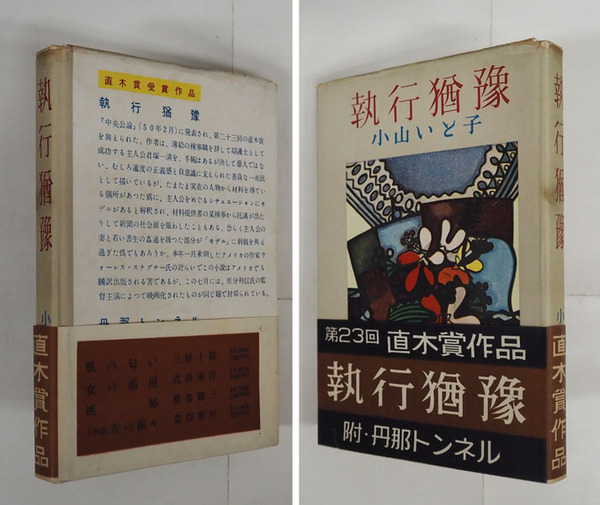 執行猶豫
小
直木賞作品
直木賞受賞作品
執行猶豫
『中央公論』(50年2月)に発表され、第二十三回の直木賞
を興えられた。作者は、薄給の検事職を辞して辯護士として
成功する主人公君塚一満を、手腕はあるが決して悪人ではな
い、むしろ適度の正義感と自意識に支えられた善良な一市民
として描いているが、たまたま実在の人物から材料を得てい
る個所があつた為に、主人公をめぐるシチュエーションにモ
デルがあると解釈され、材料提供者の某検事から抗議が出た
りして新聞の社会面を賑わしたこともある。恐らく主人公の
妻と若い書生の姦通を扱つた部分が「モデル」に刺戟を興え
過ぎた為でもあろうか。本年一月来朝したアメリカの作家ウ
ォーレス・ステグナー氏の計らいでこの小説はアメリカでも
飜訳出版される筈であるが、この七月には、佐分利信氏の監
督主演によつて映画化されたものが同じ題で封切られている。
丹那トンネル
執行猶豫
小山いと子
第23回 直木賞作品
執行猶豫
附・丹那トンネル
執行猶豫
小
直木賞作品